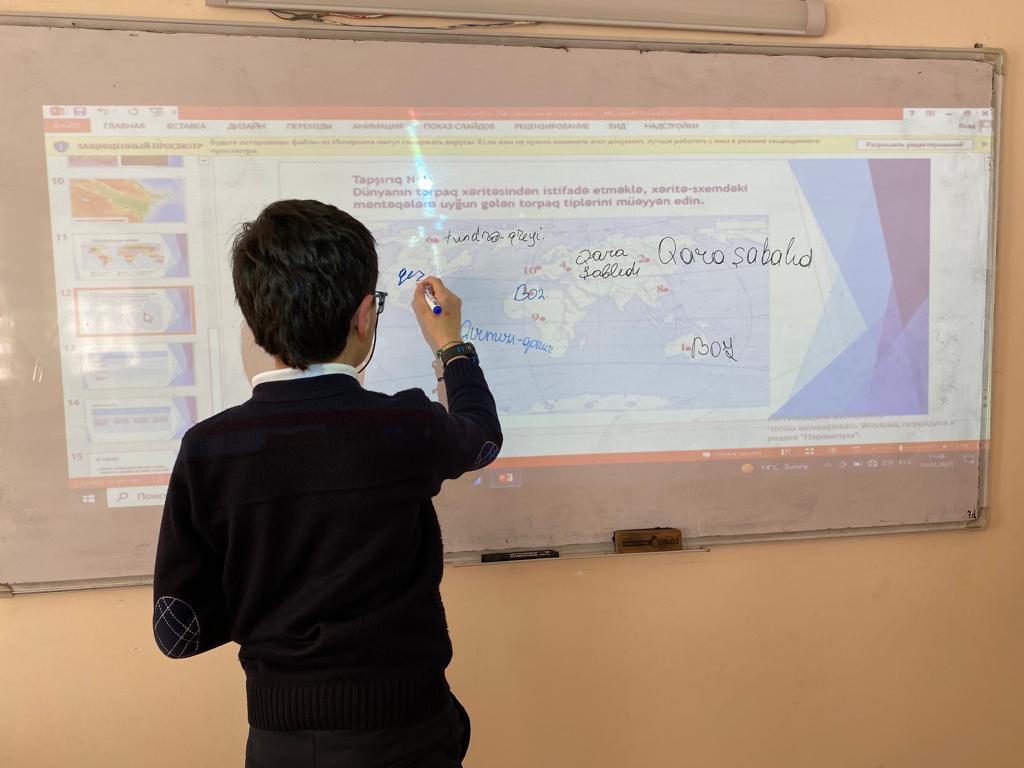 ФАЙЛ ГЛАВНАЯ ВСТАВКА ДИЗАЙН ПЕРЕХОДЫ АНИМАЦИЯ ПОКАЗ СЛАЙДОВ РЕЦЕНЗИРОВАНИЕ ВИД НАДСТРОЙКИ Вход
ЗАЩИЩЕННЫЙ ПРОСМОТР Будьте осторожны: файлы из Интернета могут содержать вирусы. Если вам не нужно изменять этот документ, лучше работать с ним в режиме защищенного
просмотра. Разрешить редактирование
10
11
12
14
15
Tapşırıq N
Dünyanın torpaq xəritəsindən istifadə etməklə, xəritə-sxemdəki
məntəqələrə uyğun gələn torpaq tiplərini müəyyən edin.
6 tundra-qleyi.
qara
şablıdı
Qara şabalıd
10
4
2
8
Boz.
9
Qırmızı-qonur
1 Boz
Чтобы активировать Windows, перейдите в
раздел "Параметры".
14°C Sunny
11:46
Поис